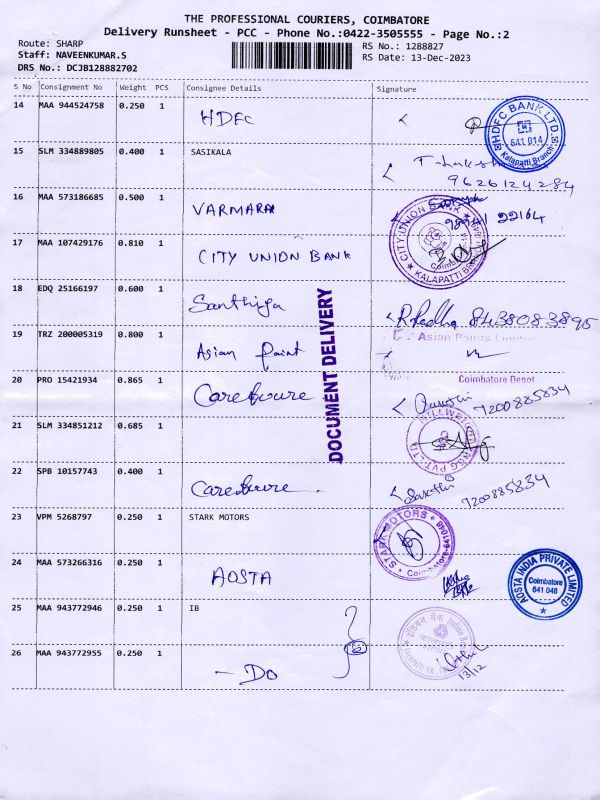 THE PROFESSIONAL COURIERS, COIMBATORE
Delivery Runsheet - PCC - Phone No.:0422-3505555 - Page No.:2
Route: SHARP
RS No.: 1288827
Staff: NAVEENKUMAR.S
RS Date: 13-Dec-2023
DRS No.: DCJB128882702
S No Consignment No Weight PCS Consignee Details Signature
14 MAA 944524758 0.250 1 HDFC
HDFC BANK LTD
641 014
Kalapatti Branch
15 SLM 334889805 0.400 1 SASIKALA
9626124284
16 MAA 573186685 0.500 1 VARMARA
17 MAA 107429176 0.810 1 CITY UNION BANK
CITY UNION BANK
KALAPATTI
18 EDQ 25166197 0.600 1 Santhiya R. Radha 8438083895
DOCUMENT DELIVERY
19 TRZ 200005319 0.800 1 Asian Paint
Asian Paints Limited
Coimbatore Depot
20 PRO 15421934 0.865 1 Careboure 7200885834
21 SLM 334851212 0.685 1
22 SPB 10157743 0.400 1 Careboure Sakthi
7200885834
23 VPM 5268797 0.250 1 STARK MOTORS
STARK MOTORS
24 MAA 573266316 0.250 1 AOSTA
AOSTA INDIA PRIVATE LIMITED
Coimbatore
641 048
25 MAA 943772946 0.250 1 IB
इंडियन बैंक Indian Bank
26 MAA 943772955 0.250 1 - DO
13/12